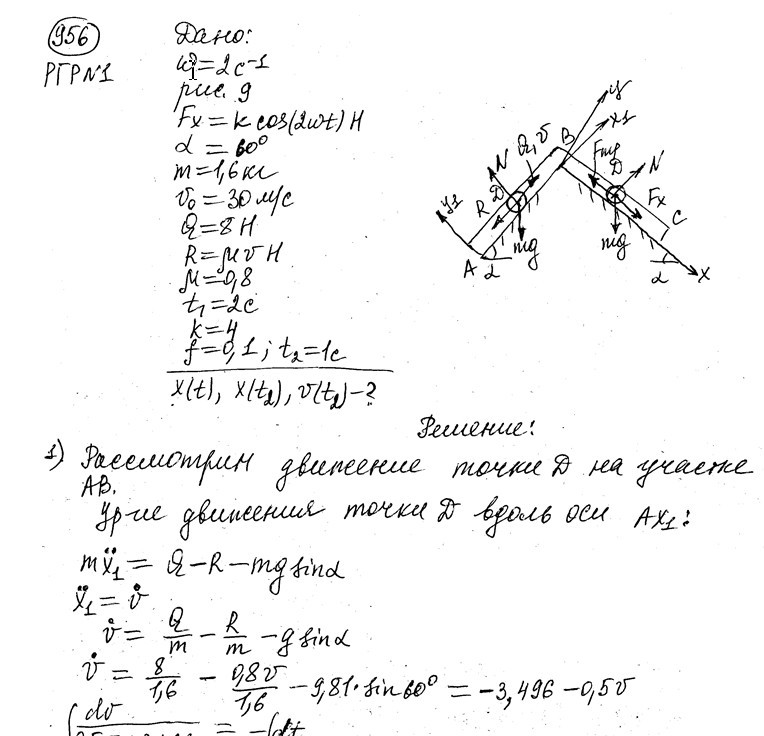 956
РГР№1
Дано:
ω=2с⁻¹
рис. 9
Fx=k cos(2ωt) Н
α = 60°
m=1,6кг
v₀=30 м/с
Q=8 Н
R=μv Н
μ=0,8
t₁=2с
k=4
f=0,1; t₂=1с
x(t), x(t₂), v(t₂)-?
y
x1
B
Q, v
Fтр
D
N
N
y1
R
D
Fx
C
mg
mg
A
α
α
x
Решение:
1) Рассмотрим движение точки D на участке
AB.
Ур-ие движения точки D вдоль оси Ax₁:
mẍ₁ = Q - R - mg sinα
ẍ₁ = v̇
v̇ = Q/m - R/m - g sinα
v̇ = 8/1,6 - 0,8v/1,6 - 9,81·sin60° = -3,496 - 0,5v